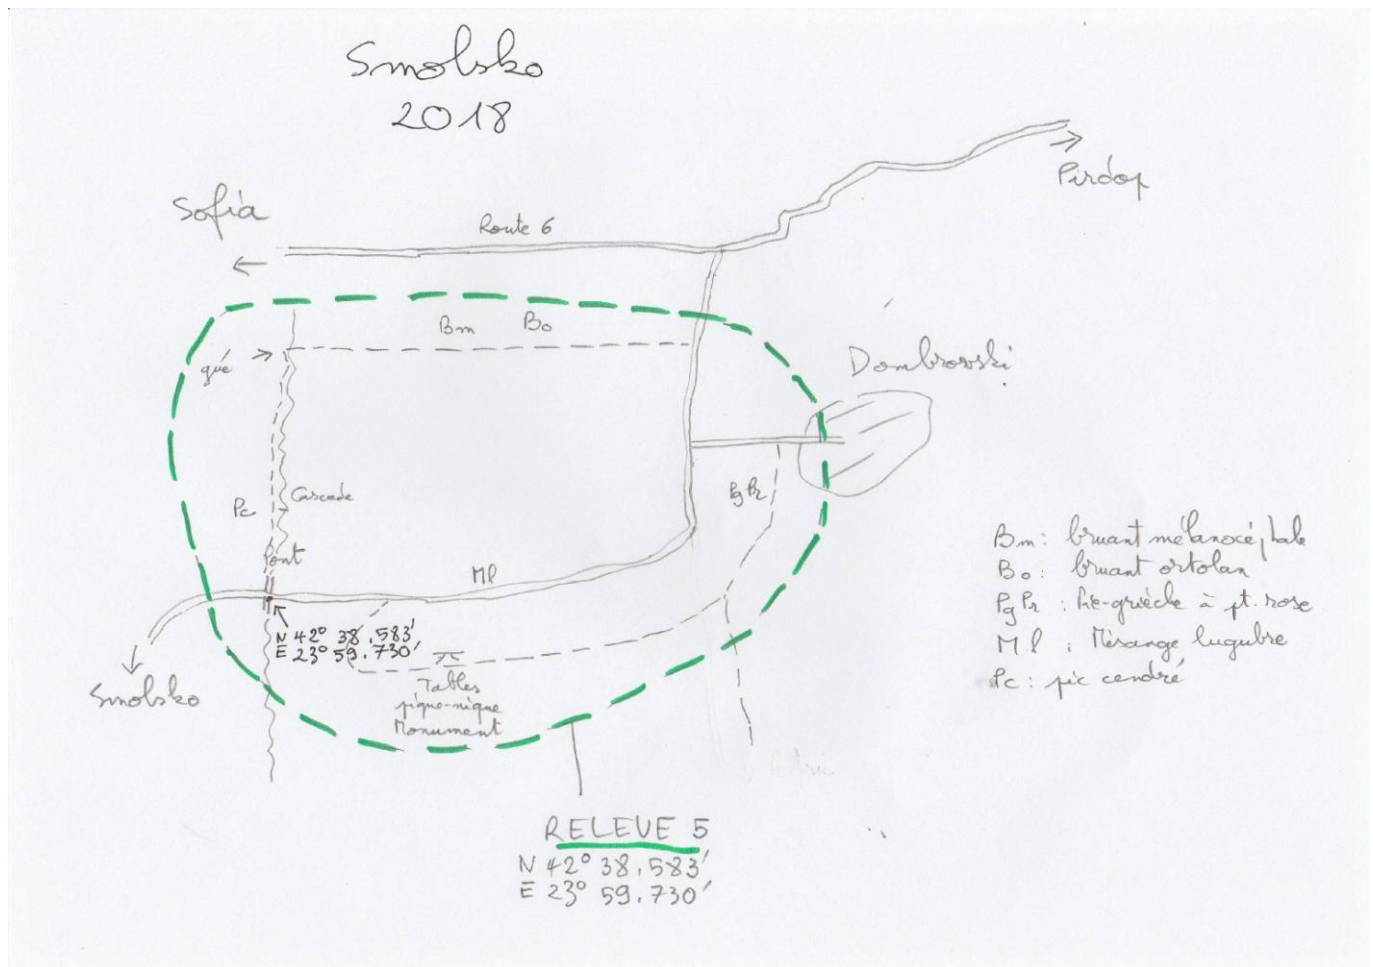 Smolsko
2018
Pirdop
Sofia
Route 6
Bm Bo
gué
Dombrovski
PgPr
Cascade
Pc
Pont
Ml
N 42° 38.583'
E 23° 59.730'
Smolsko
Tables
pique-nique
Monument
Bm: bruant mélanocéphale
Bo: bruant ortolan
PgPr: Pie-grièche à pt. rose
Ml: Mésange lugubre
Pc: pic cendré
RELEVE 5
N 42° 38.583'
E 23° 59.730'